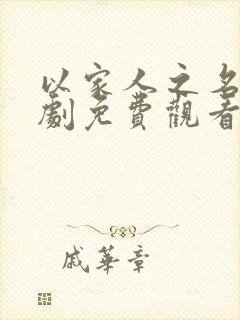 以家人之名
劇免費觀看
戚華章